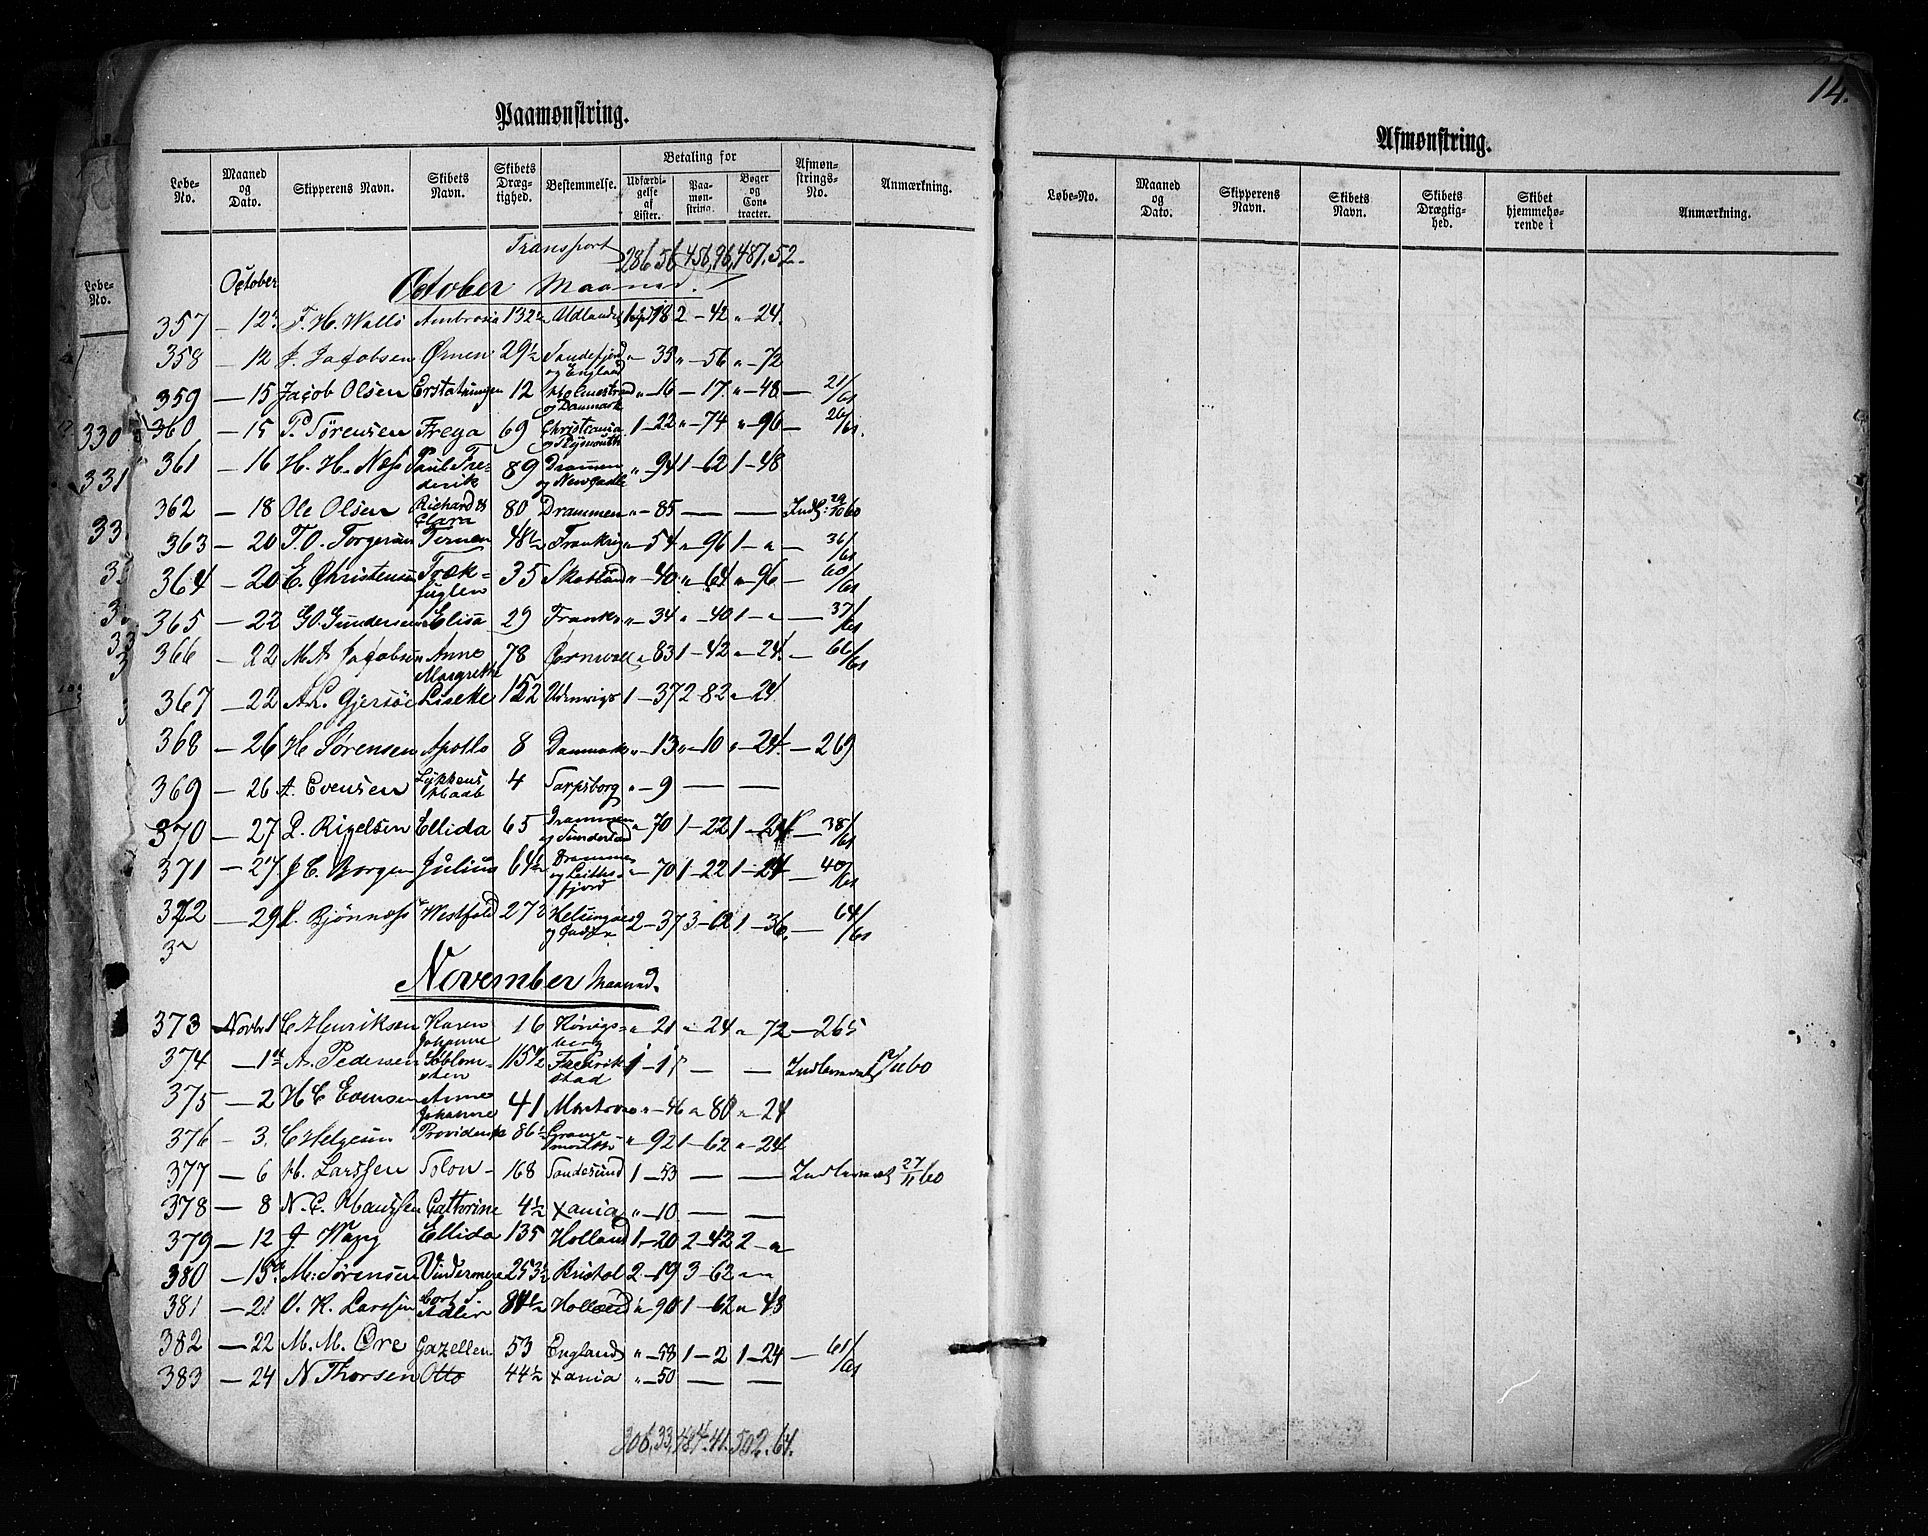 14.
Paamønstring.
Løbe-No. Maaned og Dato. Skipperens Navn. Skibets Navn. Skibets Dræg-tighed. Bestemmelse. Betaling for Udfærdi-gelse af Lister. Paa-møn-string. Bøger og Con-tracter. Afmøn-strings-No. Anmærkning.
Transport 286 56 456,96, 481.52.
October
October Maaned.
357 — 12. F. H. Wallö Ambrosia 132½ Udlandet 18 2 — 42 " — 24.
358 — 12 J. Jacobsen Ørnen 29½ Sandefjord og England " — 35 " — 56 " — 72
359 — 15 Jacob Olsen Erstatningen 12 Holmestrand og Danmark " — 16 — 17. " — 48 — 21/61
360 — 15 P. Sörensen Freya 69 Christiania og Plÿmouth 1 — 22 " — 74 " — 96 — 26/61.
361 — 16 H. H. Næss Paul Fre-derik 89 Drammen og Newcastle " — 94 1 — 62 1 — 48
362 — 18 Ole Olsen Richard & Clara 80 Drammen " — 85 — — Indl: 29/10 60
363 — 20 T. O. Torgersen Ternen 48½ Frankrig " — 54 " — 96 1 — " — 36/61
364 — 20 E. Christensen Træk-fuglen 35 Skotland " — 40 " — 64 " — 96 — 60/61
365 — 22 G. O. Gundersen Elisa 29 Frankr " — 34 " — 40 1 — " — 37/61
366 — 22 M A Jacobsen Anne Margrethe 78 Cornwall " — 83 1 — 42 " — 24. — 66/61
367 — 22 A. L. Gjersöe Liseke 152 Udenrigs 1 — 37 2 — 82 " — 24
368 — 26 H Sørensen Apollo 8 Danmark " — 13 " — 10 " — 24. — 269
369 — 26 A. Evensen Lykkens Haab 4 Sarpsborg " — 9 — —
370 — 27 L. Rigelsen Ellida 65 Drammen og Sunderland " — 70 1 — 22 1 — 24 — 38/61
371 — 27 J C. Borgen Julius 64½ Drammen og Leithsfjord " — 70 1 — 22 1 — 24 — 40/61
372 — 29 L. Bjönnæss Westfold 272 Helsingöer og 2 — 37 3 — 62 1 — 36. — 64/61
3
November Maaned.
373 — Novbr 1 C Henriksen Karen Johanne 16 Königs-berg " — 21 " — 24 " — 72 — 265
374 — 1st A. Pedersen Söblom-sten 115½ Fredrik-stad 1 — 17 — — Indleveret 12/11 60
375 — 2 H C Evensen Anne Johanne 41 Montrose " — 46 " — 80 " — 24
376 — 3. C Helgesen Providentia 86½ Grange-mouth " — 92 1 — 62 " — 24
377 — 6 H. Larssen Solon 168 Sandesund 1 — 53 — — Indleveret 27/11 60
378 — 8 N. C. Hanssen Cathrine 4½ Xania " — 10. — —
379 — 12 J Wang Ellida 135 Holland 1. — 20 2 — 42 2 — "
380 — 15. M. Sørensen Vindermere 253½ Bristol 2 — 19 3 — 62 — "
381 — 21 O. K. Larssen Cort S. Adler 84½ Holland " — 90 1 — 62 " — 48
382 — 22 M. M. Øre Gazellen 53 England " — 58 1 — 2 1 — 24 — 61/61
383 — 24 N Thorsen Otto 44½ Xania " — 50 — —
306,33, 484.41. 502.64.
Løbe-No.
330
331
33
Afmønstring.
Løbe-No. Maaned og Dato. Skipperens Navn. Skibets Navn. Skibets Drægtig-hed. Skibet hjemmehø-rende i Anmærkning.